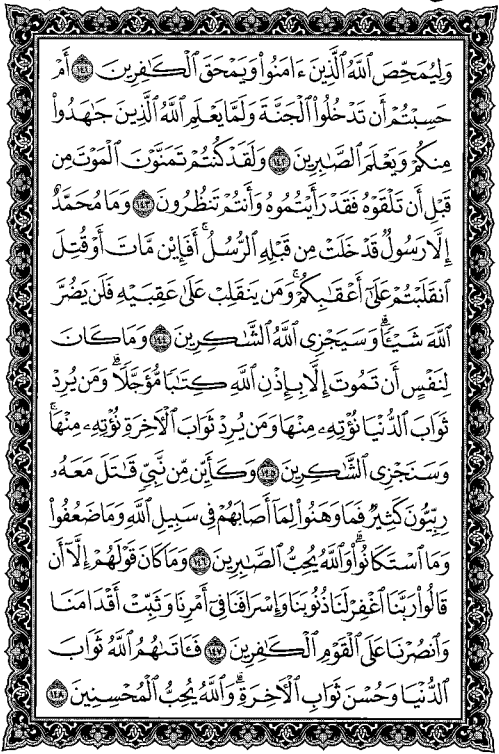 وَلِيُمَحِّصَ ٱللَّهُ ٱلَّذِينَ ءَامَنُوا۟ وَيَمْحَقَ ٱلْكَـٰفِرِينَ ١٤١ أَمْ
حَسِبْتُمْ أَن تَدْخُلُوا۟ ٱلْجَنَّةَ وَلَمَّا يَعْلَمِ ٱللَّهُ ٱلَّذِينَ جَـٰهَدُوا۟
مِنكُمْ وَيَعْلَمَ ٱلصَّـٰبِرِينَ ١٤٢ وَلَقَدْ كُنتُمْ تَمَنَّوْنَ ٱلْمَوْتَ مِن
قَبْلِ أَن تَلْقَوْهُ فَقَدْ رَأَيْتُمُوهُ وَأَنتُمْ تَنظُرُونَ ١٤٣ وَمَا مُحَمَّدٌ
إِلَّا رَسُولٌ قَدْ خَلَتْ مِن قَبْلِهِ ٱلرُّسُلُ ۚ أَفَإِي۟ن مَّاتَ أَوْ قُتِلَ
ٱنقَلَبْتُمْ عَلَىٰٓ أَعْقَـٰبِكُمْ ۚ وَمَن يَنقَلِبْ عَلَىٰ عَقِبَيْهِ فَلَن يَضُرَّ
ٱللَّهَ شَيْـًٔا ۗ وَسَيَجْزِى ٱللَّهُ ٱلشَّـٰكِرِينَ ١٤٤ وَمَا كَانَ
لِنَفْسٍ أَن تَمُوتَ إِلَّا بِإِذْنِ ٱللَّهِ كِتَـٰبًا مُّؤَجَّلًا ۗ وَمَن يُرِدْ
ثَوَابَ ٱلدُّنْيَا نُؤْتِهِۦ مِنْهَا وَمَن يُرِدْ ثَوَابَ ٱلْـَٔاخِرَةِ نُؤْتِهِۦ مِنْهَا ۚ
وَسَنَجْزِى ٱلشَّـٰكِرِينَ ١٤٥ وَكَأَيِّن مِّن نَّبِىٍّ قَـٰتَلَ مَعَهُۥ
رِبِّيُّونَ كَثِيرٌ فَمَا وَهَنُوا۟ لِمَآ أَصَابَهُمْ فِى سَبِيلِ ٱللَّهِ وَمَا ضَعُفُوا۟
وَمَا ٱسْتَكَانُوا۟ ۗ وَٱللَّهُ يُحِبُّ ٱلصَّـٰبِرِينَ ١٤٦ وَمَا كَانَ قَوْلَهُمْ إِلَّآ أَن
قَالُوا۟ رَبَّنَا ٱغْفِرْ لَنَا ذُنُوبَنَا وَإِسْرَافَنَا فِىٓ أَمْرِنَا وَثَبِّتْ أَقْدَامَنَا
وَٱنصُرْنَا عَلَى ٱلْقَوْمِ ٱلْكَـٰفِرِينَ ١٤٧ فَـَٔاتَىٰهُمُ ٱللَّهُ ثَوَابَ
ٱلدُّنْيَا وَحُسْنَ ثَوَابِ ٱلْـَٔاخِرَةِ ۗ وَٱللَّهُ يُحِبُّ ٱلْمُحْسِنِينَ ١٤٨